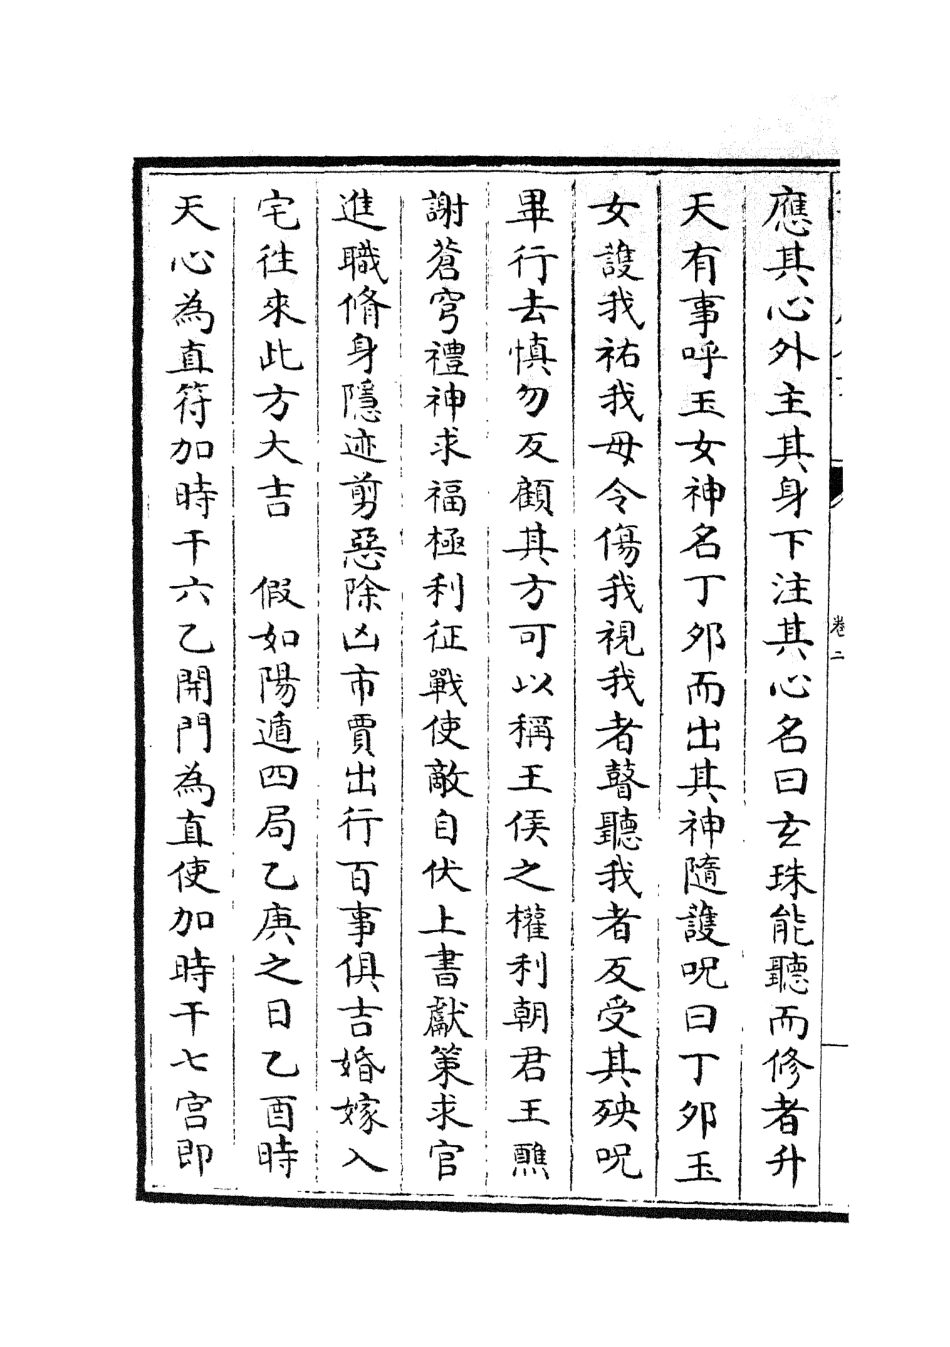 應其心外主其身下注其心名曰玄珠能聽而修者升
天有事呼玉女神名丁夘而出其神隨護呪曰丁夘玉
女護我祐我毋令傷我視我者瞽聽我者反受其殃呪
畢行去慎勿反顧其方可以稱王侯之權利朝君王醮
謝蒼穹禮神求福極利征戰使敵自伏上書獻策求官
進職脩身隱迹剪惡除凶市賈出行百事俱吉婚嫁入
宅徃來此方大吉　假如陽遁四局乙庚之日乙酉時
天心為直符加時干六乙開門為直使加時干七宫即
卷二